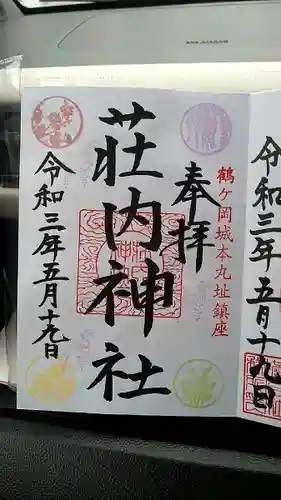 鶴ヶ岡城本丸址鎮座
奉拝
荘内神社
令和三年五月十九日
令和三年五月十九日